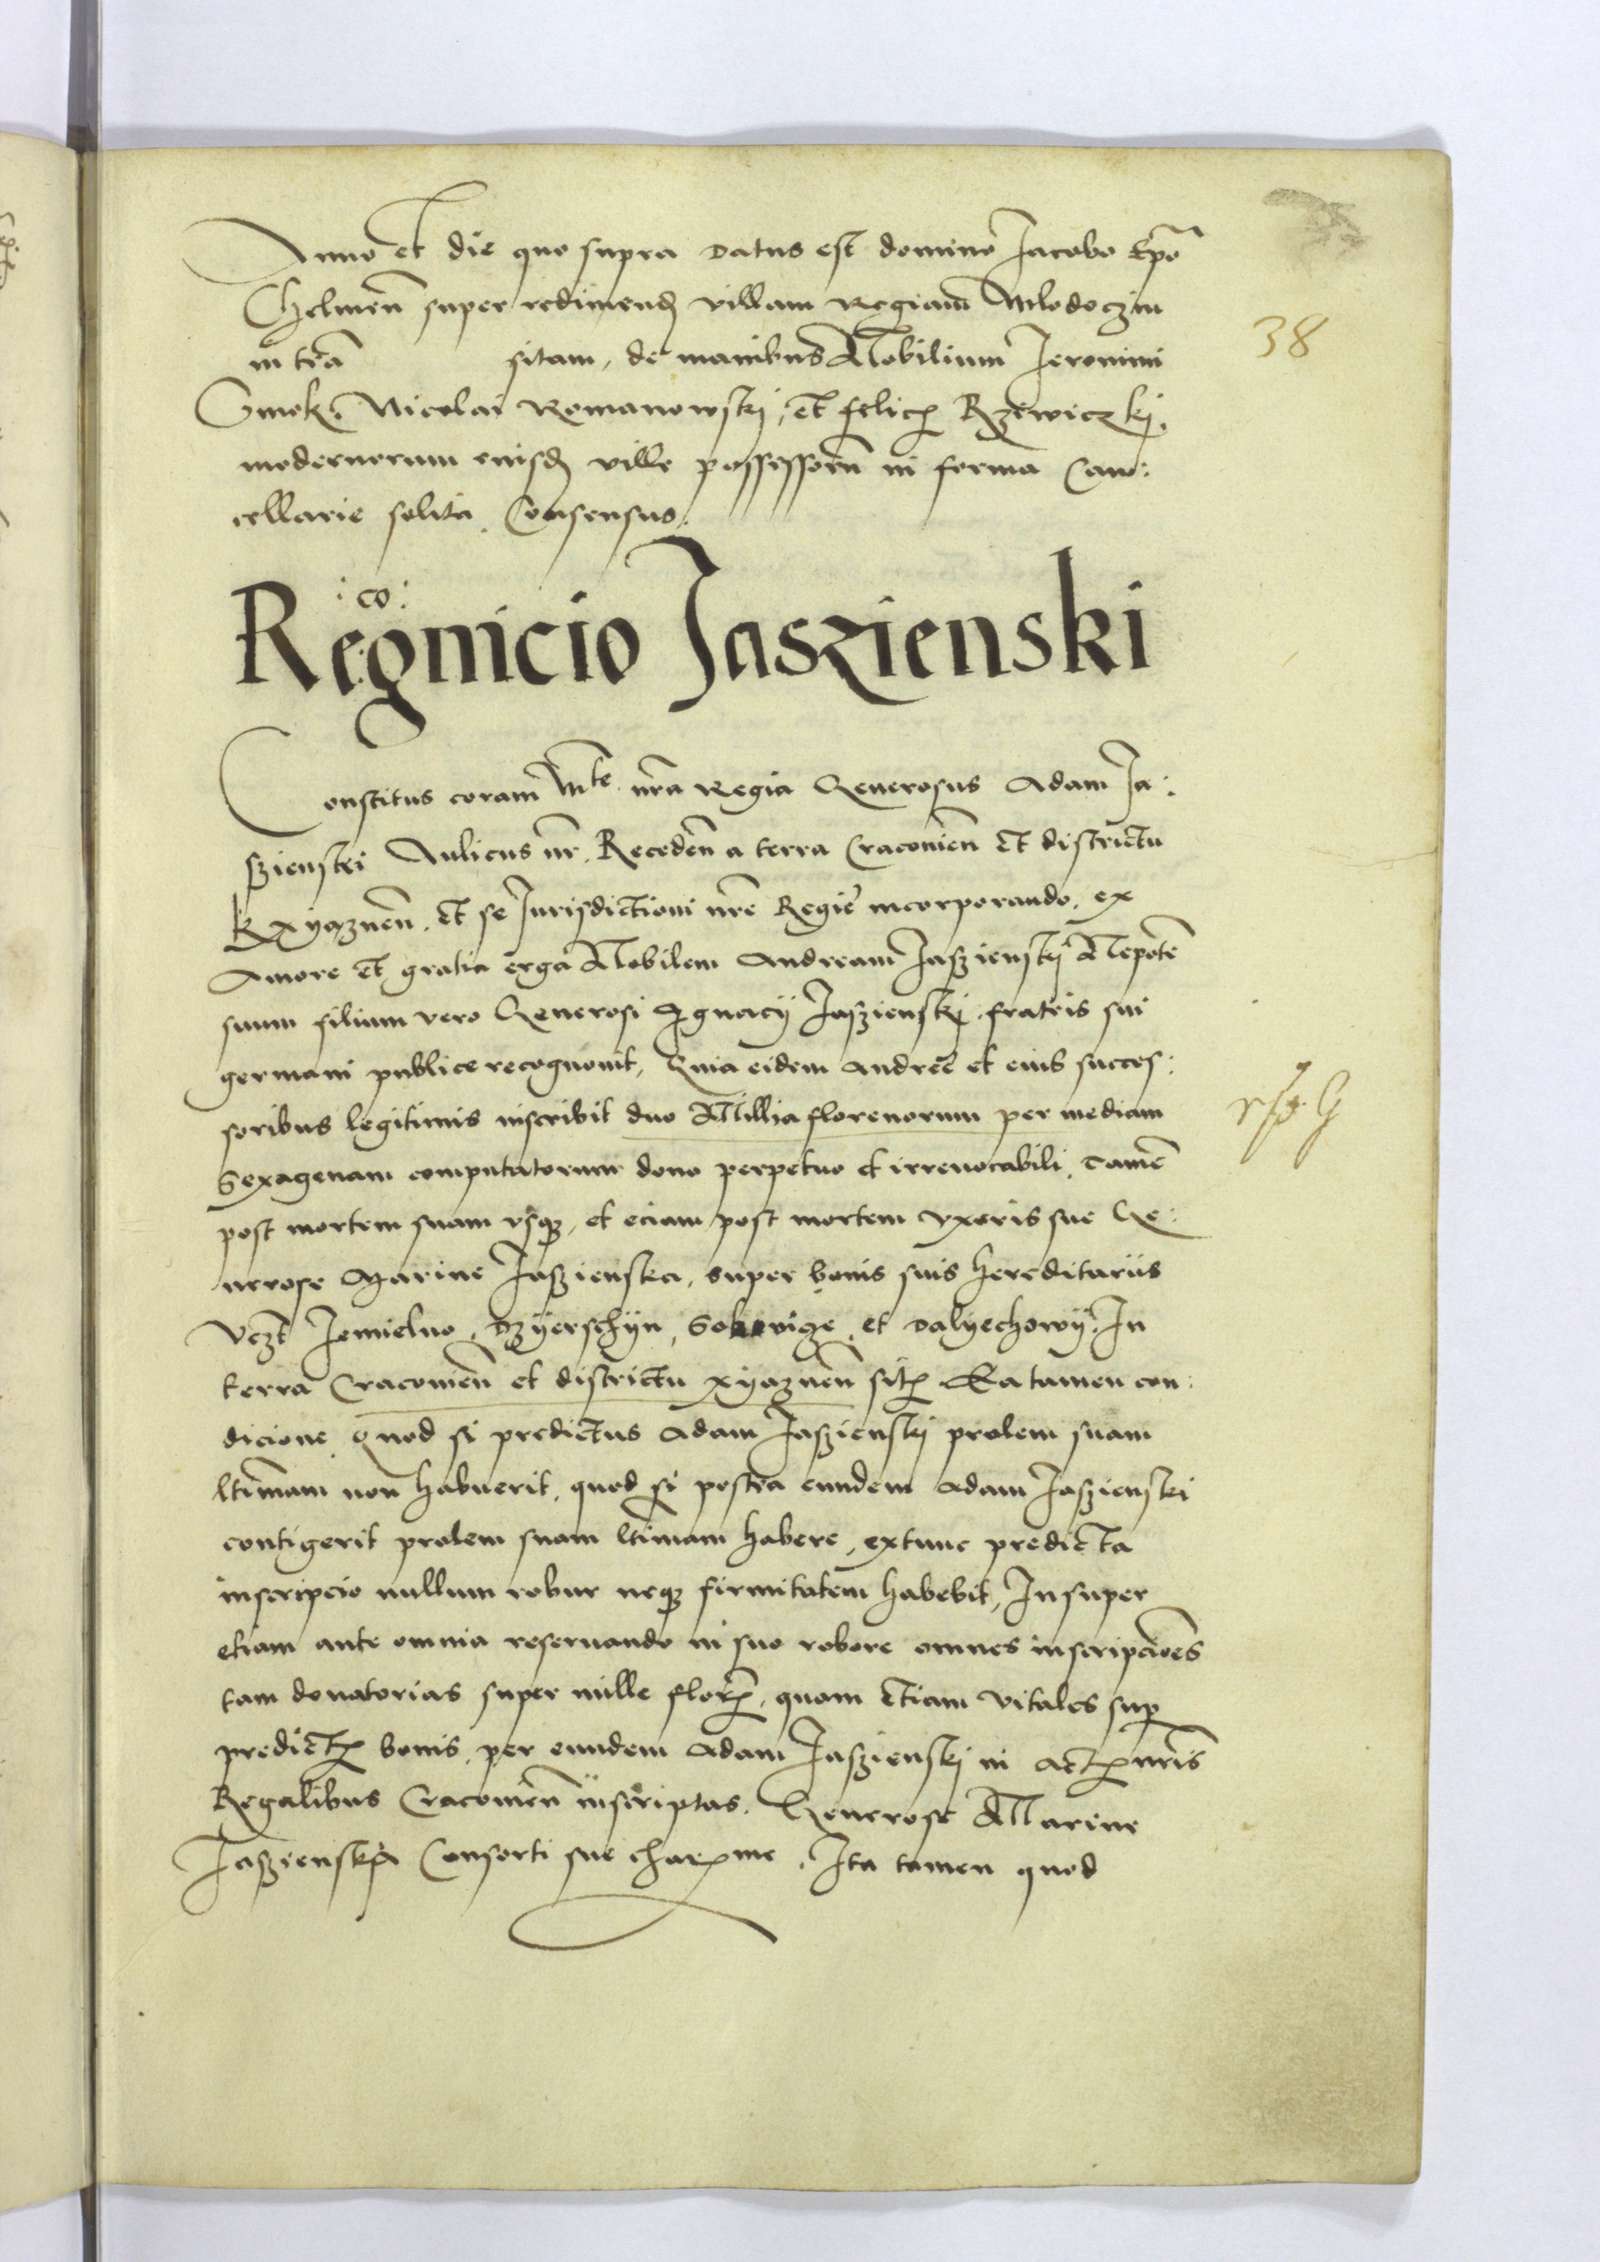 Anno et die quo supra datus est domino Iacobo Epo
Chelmen super redimend villam Regiam Mlodoczin
in tra sitam, de manibus Nobilium Ieronimi
Smok, Nicolai Romanowskj, et felic Rzewiczkj,
modernorum eiusd ville possessorn in forma Can:
cellarie solita Consensus.
38
Regnicio Jaszienski
:co:
Constitus coram Mte nra Regia Generosus Adam Ja:
szienski Aulicus nr, Receden a terra Cracouien et districtu
Kxyaznen, et se Iurisdictioni nre Regie incorporando, ex
Amore et gratia erga Nobilem Andream Jaszienskj Nepote
suum filium vero Generosi Ignacij Jaszienskj fratris sui
germani publice recognouit, Quia eidem Andree et eius succes:
soribus legitimis inscribit duo Millia florenorum per mediam
Sexagenam computatorum dono perpetuo et irreuocabili, tame
post mortem suam usq, et eciam post mortem uxoris sue Ge:
nerose Marine Jaszienska, super bonis suis hereditariis
Vczt Iemielno, Dzyerschyn, et Dalyechowy. In
terra Cracouien et districtu xyaznen sit Ea tamen con:
dicione quod si predictus Adam Jaszienskj prolem suam
ltimam non habuerit, quod si postea eundem Adam Jaszienski
contigerit prolem suam ltimam habere, extunc predicta
inscripcio nullum robur neq firmitatem habebit, Insuper
etiam ante omnia reseruando in suo robore omnes inscripcioes
tam donatorias super mille flor, quam etiam vitales sup
predict bonis per eundem Adam Jaszienskj in act nris
Regalibus Cracouien inscriptas, Generose Marine
Jaszienska Consorti sue charme, Ita tamen quod